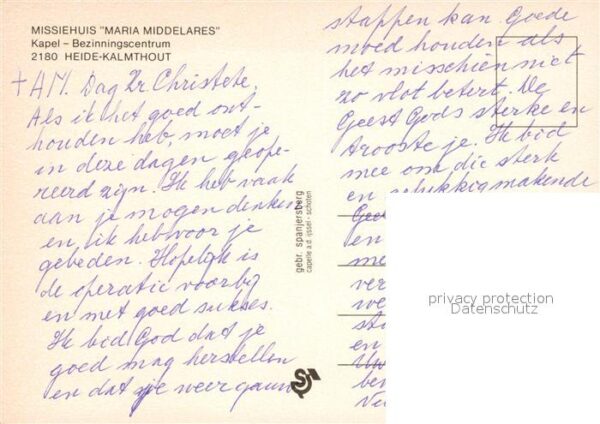 MISSIEHUIS "MARIA MIDDELARES"
Kapel – Bezinningscentrum
2180 HEIDE-KALMTHOUT
+ AM. Dag Zr Christete,
Als ik het goed ont-
houden heb, moet je
in deze dagen geope-
reerd zijn. Ik heb vaak
aan je mogen denken
en, ik heb voor je
gebeden. Hopelijk is
de operatie voorbij
en met goed sukses.
Ik bid God dat je
goed mag herstellen
en dat je weer gauw
gebr. spanjersberg
capelle a.d. ijssel - schoten
stappen kan. Goede
moed houden als
het misschien niet
zo vlot betert. De
Geest Gods sterke en
trooste je. Ik bid
mee om die sterk
en gelukkigmakende
Gees
en
me
ver
we
sti
en
ben
Ve
privacy protection
Datenschutz